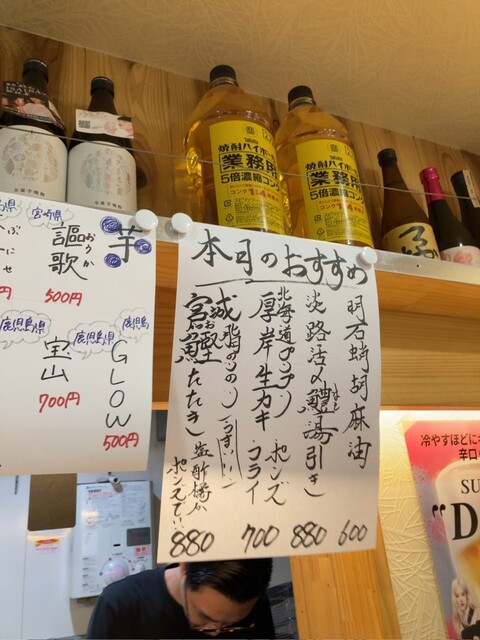 本日のおすすめ
明石蛸胡麻油
600
淡路活〆鱧湯引き
880
北海道プリプリ
厚岸生カキ ポンズ フライ
700
宮城
鰹たたき
880
芋
宮崎県
謳歌
おうか
500円
鹿児島
GLOW
500円
鹿児島県
宝山
700円
鹿児島県
Takara
焼酎ハイボール
業務用
5倍濃縮コンク
Takara
焼酎ハイボール
業務用
5倍濃縮コンク
冷やすほどに
辛口
SU
"D